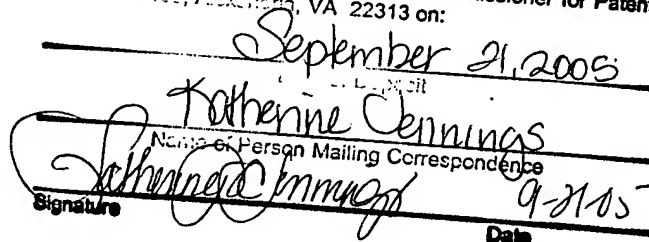 missioner for Patent
, VA 22313 on:
September 21, 2005
Katherine Jennings
Name of Person Mailing Correspondence
Katherine Jennings 9-21-05
Signature Date